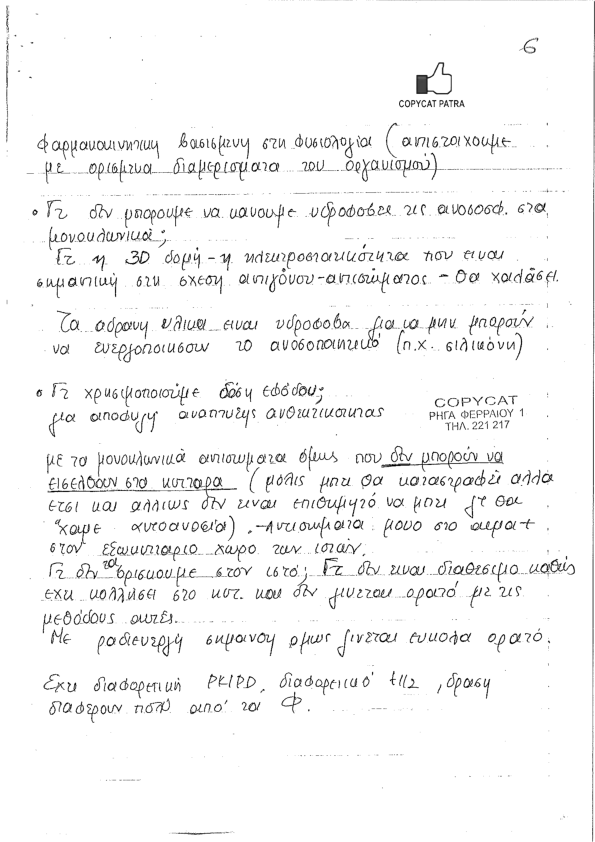 6
COPYCAT PATRA
Φαρμακοκινητικη βασισμενη στη φυσιολογία (αντιστοιχουμε
με ορισμενα διαμερισματα του οργανισμού)
• Γτ δεν μπορουμε να κανουμε υδροφοβες τις ανοσοσφ. στα
μονοκλωνικά;
Γτ η 3D δομή - η ηλεκτροστατικότητα που ειναι
σημαντική στη σχεση αντιγόνου-αντισώματος - θα χαλάσει.
Τα αδρανη υλικα ειναι υδροφοβα για να μην μπορούν
να ενεργοποιησουν το ανοσοποιητικό (π.χ. σιλικόνη)
• Γτ χρησιμοποιούμε δόση εφόδου;
για αποφυγη αναπτυξης ανθεκτικοτητας
COPYCAT
ΡΗΓΑ ΦΕΡΡΑΙΟΥ 1
ΤΗΛ. 221 217
με τα μονοκλωνικά αντισωματα όμως που δεν μπορούν να
εισελθουν στα κυτταρα (μόλις μπει θα καταστραφεί αλλα
ετσι και αλλιως δεν ειναι επιθυμητό να μπει γτ θα
'χαμε αυτοανοσία). - Αντισωματα μονο στο αιμα +
στον εξωκυτταριο χωρο των ιστών.
Γτ δεν τα βρισκουμε στον ιστό; Γτ δεν ειναι διαθεσιμο καθώς
εχει κολλήσει στο κυτ. και δεν γινεται ορατό με τις
μεθόδους αυτές.
Με ραδιενεργή σημανση ομως γινεται ευκολα ορατό.
Εχει διαφορετική PK/PD, διαφορετικό t1/2, δραση
διαφερουν πολύ από τα Φ.